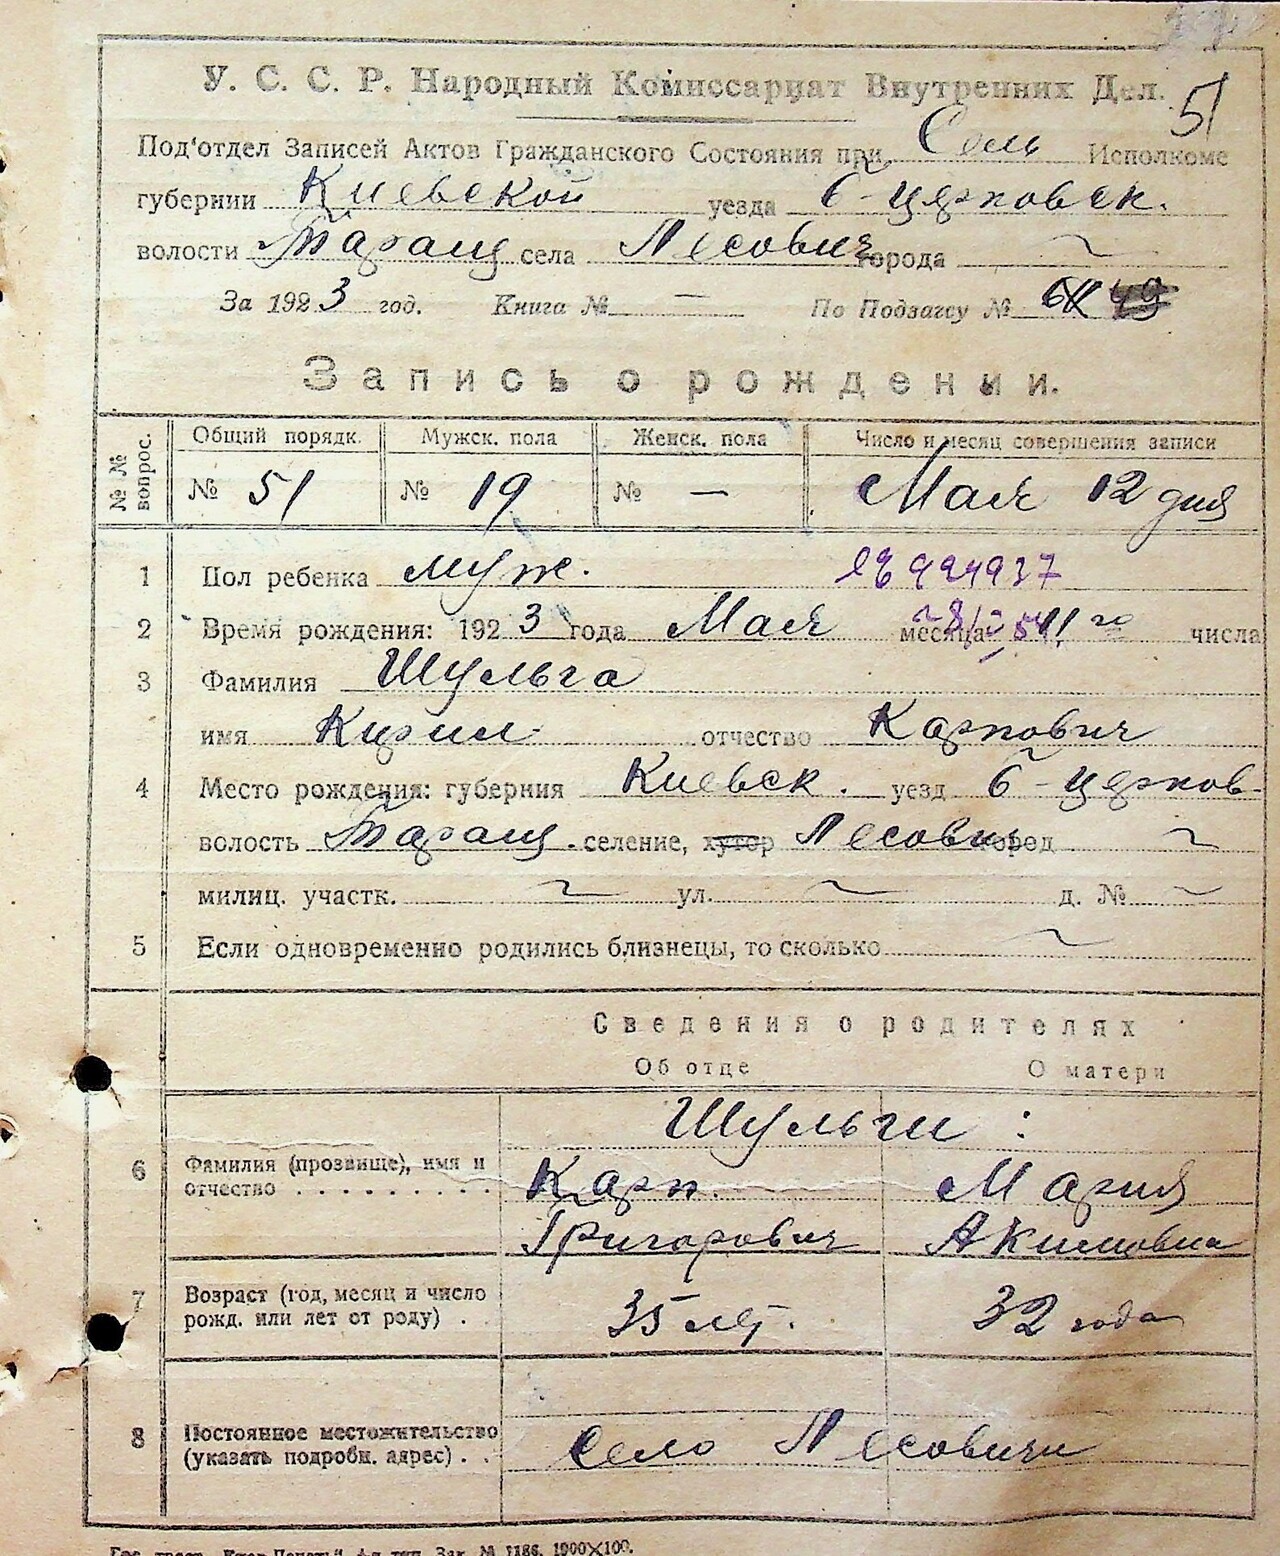 У. С. С. Р. Народный Комиссариат Внутренних Дел.
51
Под'отдел Записей Актов Гражданского Состояния при Сель Исполкоме
губернии Киевской уезда Б-церковск.
волости Таращ села Лесович города ~
За 1923 год. Книга № — По Подзагсу №
Запись о рождении.
№ № вопрос. Общий порядк. Мужск. пола Женск. пола Число и месяц совершения записи
№ 51 № 19 № — Мая 12 дня
1 Пол ребенка муж. 994937
2 Время рождения: 1923 года Мая месяца 11 го числа
3 Фамилия Шульга
имя Кирил отчество Карпович
4 Место рождения: губерния Киевск. уезд Б-церков-
волость Таращ. селение, хутор Лесович город ~
милиц. участк. ~ ул. ~ д. № ~
5 Если одновременно родились близнецы, то сколько ~
Сведения о родителях
Об отце О матери
Шульги:
6 Фамилия (прозвище), имя и Карп. Мария
отчество . . . . . . . . . . Григорович Акимовна
7 Возраст (год, месяц и число 35 лет. 32 года
рожд. или лет от роду) . .
8 Постоянное местожительство Село Лесовичи
(указать подробн. адрес) . .
Зак. № 1186. 1900×100.